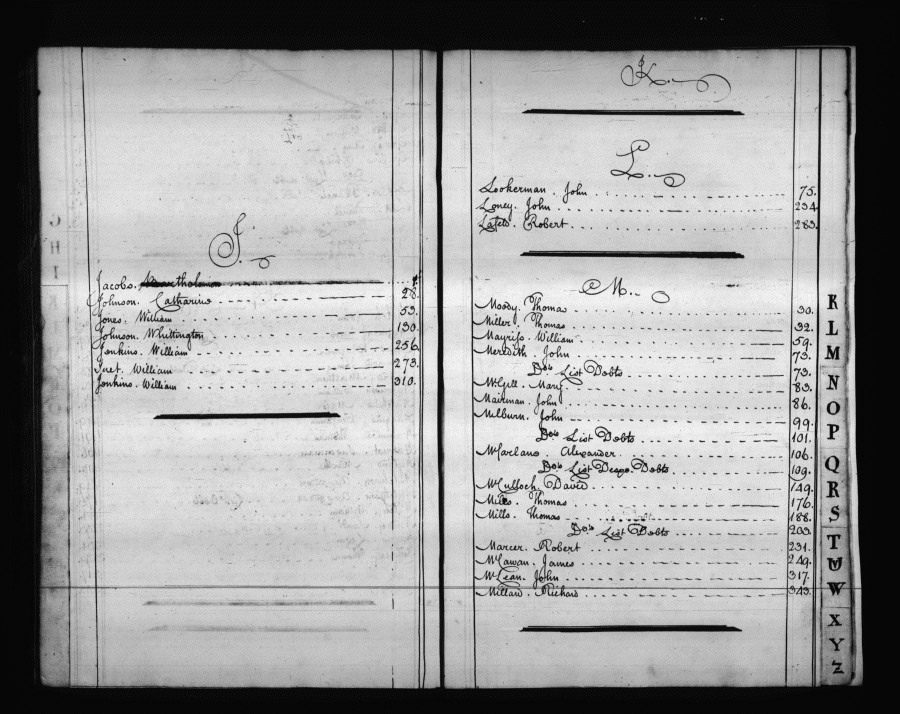 J.
Jacobs. Bartholomew
Johnson. Catharine 28.
Jones. William 53.
Johnson. Whittington 130.
Jenkins. William 256
Inet. William 273.
Jenkins. William 310.
K.
L.
Lookerman. John 75.
Loney. John 234
Robert 283.
M.
Moody. Thomas 30.
Miller. Thomas 32.
William 59.
Meredith. John 73.
Do's List Debts 73.
McGill. Mary 83.
Mairman. John 86.
Milburn. John 99.
Do's List Debts 101.
Alexander 106.
Do's List Despe. Debts 109.
McCulloch. David 149.
Mills. Thomas 176.
Mills. Thomas 188.
Do's List Debts 203.
Marcer. Robert 231.
McCawan. James 249.
McLean. John 317.
Millard. Richard 343.
K
L
M
N
O
P
Q
R
S
T
W
X
Y
Z